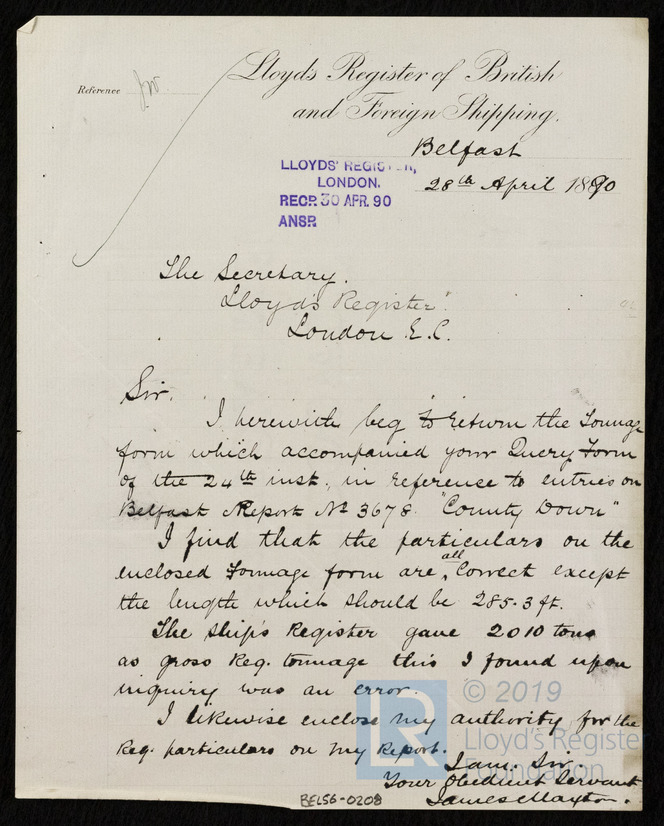 Lloyds Register of British
Reference JW.
and Foreign Shipping.
Belfast
28th April 1890
LLOYDS' REGISTER,
LONDON.
RECD. 30 APR. 90
ANSR.
The Secretary.
Lloyd's Register.
London E.C.
Sir.
I herewith beg to return the Tonnage
form which accompanied your Query Form
of the 24th inst, in reference to entries on
Belfast Report No 3678 "County Down"
I find that the particulars on the
enclosed Tonnage form are all Correct except
the length which should be 285.3 ft.
The ship's Register gave 2010 tons
as gross Reg. tonnage this I found upon
inquiry was an error.
I likewise enclose my authority for the
Reg. particulars on my Report.
I am. Sir.
Your Obedient Servant
James Maxton.
BEL56-0208
LR
© 2019
Lloyd's Register
Foundation